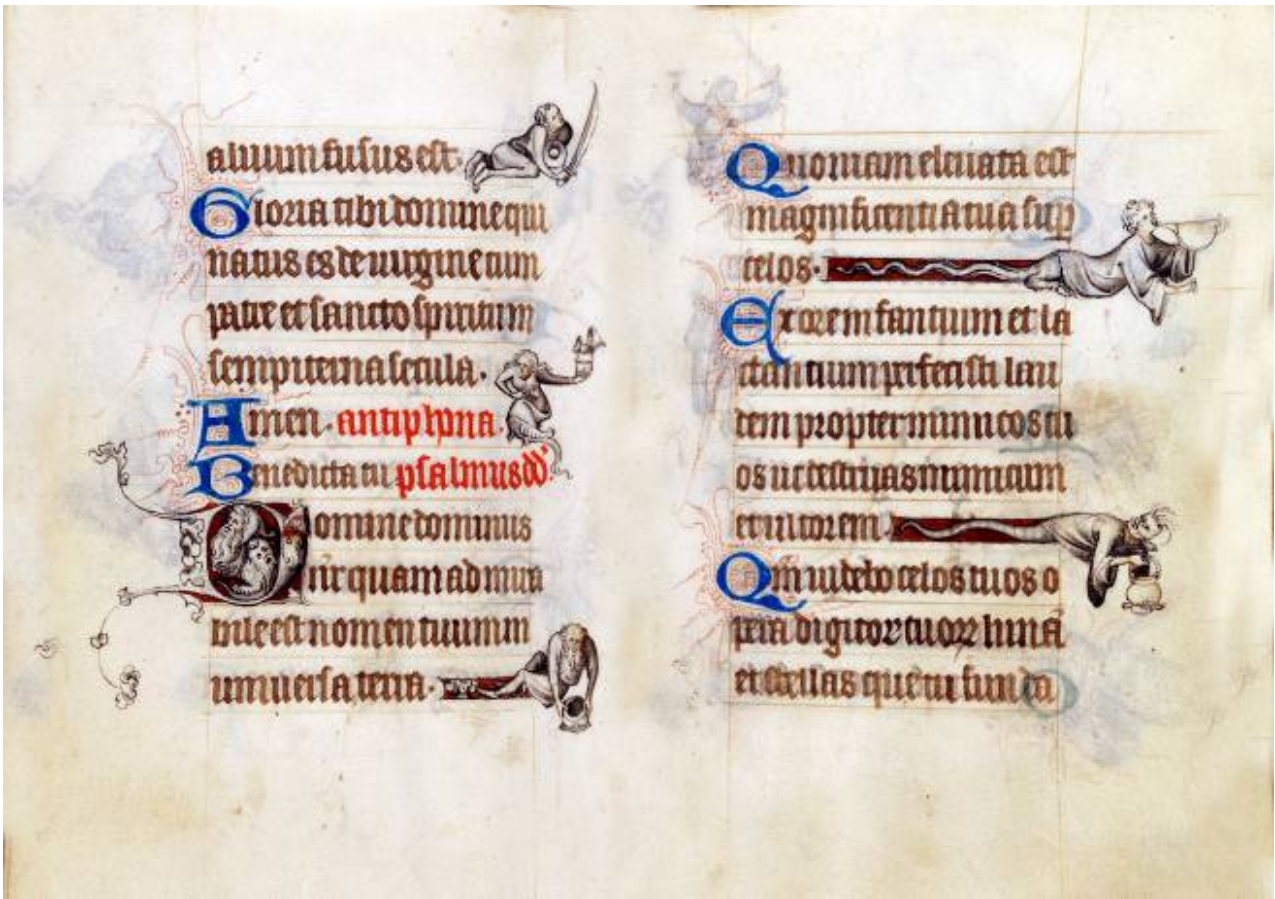 aluum fusus est.
Gloria tibi domine qui
natus es de uirgine cum
patre et sancto spiritum
sempiterna secula.
Amen. antiphona.
Benedicta tu psalmus dd'.
Domine dominus
nr quam ad mira
bile est nomen tuum in
uniuersa terra.
Quoniam eleuata est
magnificentia tua sup
celos.
Ex ore infantium et la
ctantium perfecisti lau
dem propter inimicos tu
os ut destruas inimicum
et ultorem.
Qm uidebo celos tuos o
pera digitor tuor lunā
et stellas que tu funda